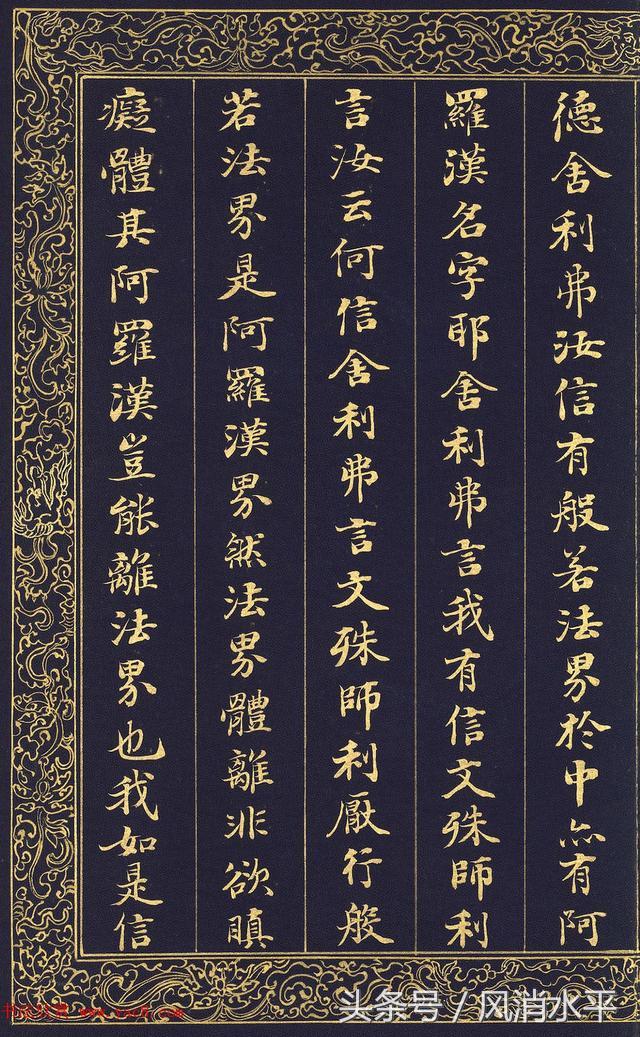 德舍利弗汝信有般若法界於中亦有阿
羅漢名字耶舍利弗言我有信文殊師利
言汝云何信舍利弗言文殊師利厭行般
若法界是阿羅漢界然法界體離非欲瞋
癡體其阿羅漢豈能離法界也我如是信
头条号／风消水平